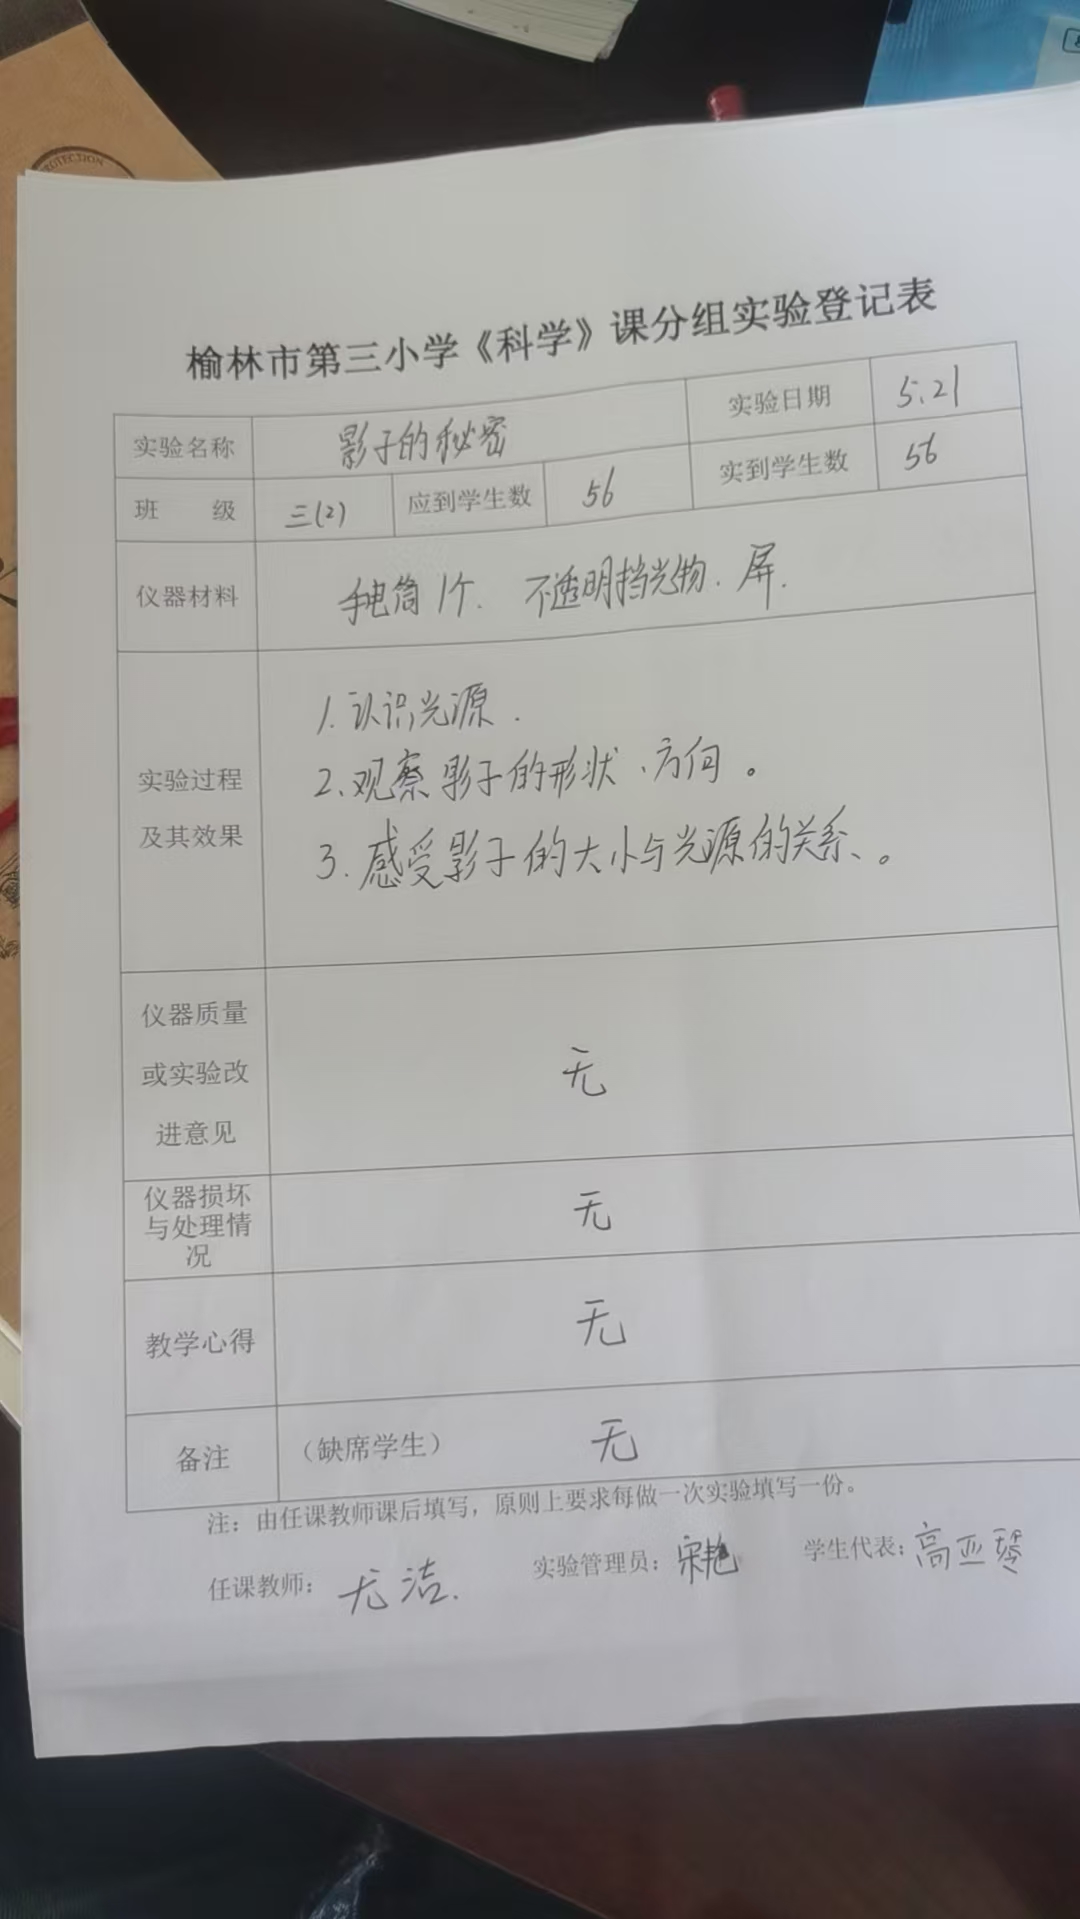 OTECTION
榆林市第三小学《科学》课分组实验登记表
实验名称 影子的秘密 实验日期 5.21
班 级 三(2) 应到学生数 56 实到学生数 56
仪器材料 手电筒1个. 不透明挡光物. 屏.
1.认识光源.
实验过程 2.观察影子的形状、方向。
及其效果
3.感受影子的大小与光源的关系、。
仪器质量
或实验改 无
进意见
仪器损坏
与处理情 无
况
教学心得 无
备注 (缺席学生) 无
注:由任课教师课后填写,原则上要求每做一次实验填写一份。
任课教师: 尤洁. 实验管理员: 宋艳 学生代表: 高亚琴